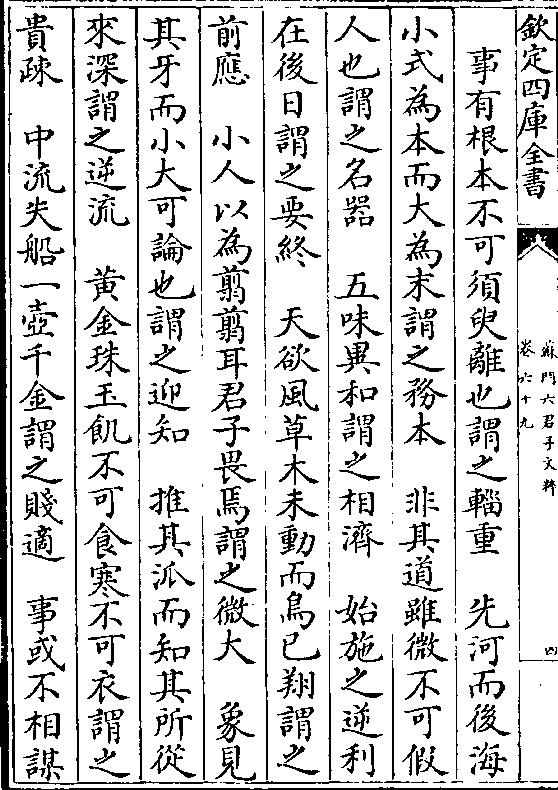 欽定四庫全書
蘇門六君子文粹
卷六十九
四
事有根本不可須臾離也謂之輜重　先河而後海
小式為本而大為末謂之務本　非其道雖微不可假
人也謂之名器　五味異和謂之相濟　始施之逆利
在後日謂之要終　天欲風草木未動而鳥已翔謂之
前應　小人以為翦翦耳君子畏焉謂之微大　象見
其牙而小大可論也謂之迎知　推其派而知其所從
來深謂之逆流　黃金珠玉飢不可食寒不可衣謂之
貴疎　中流失船一壺千金謂之賤適　事或不相謀